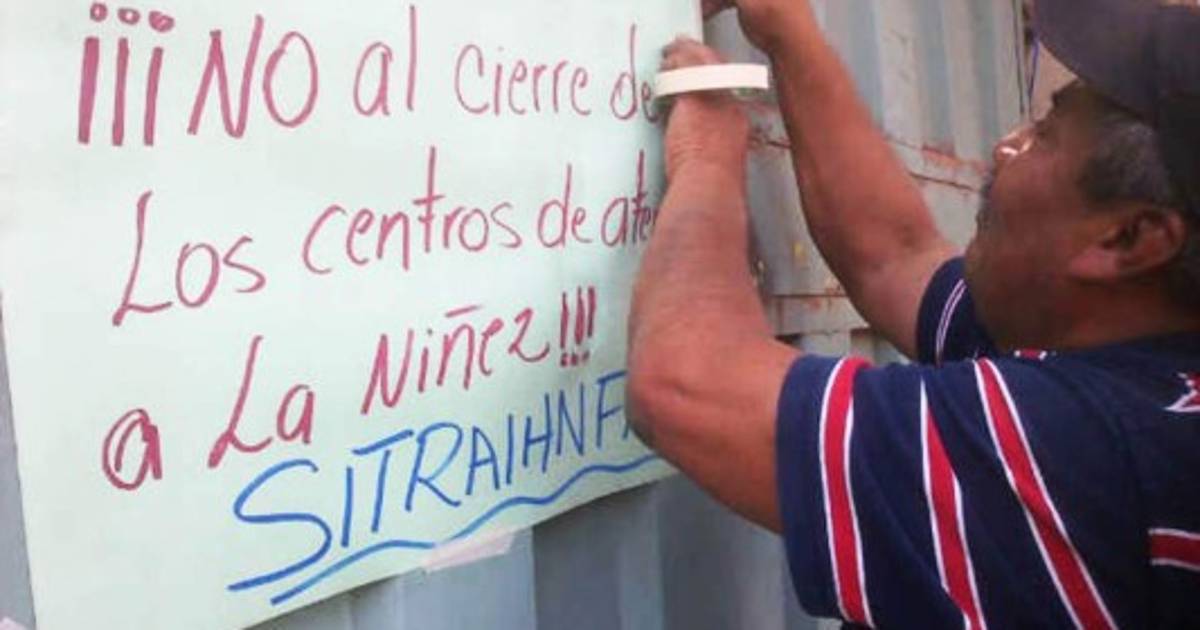 ¡¡¡NO al cierre de
Los centros de aten
a La Niñez!!!
SITRAIHNFA